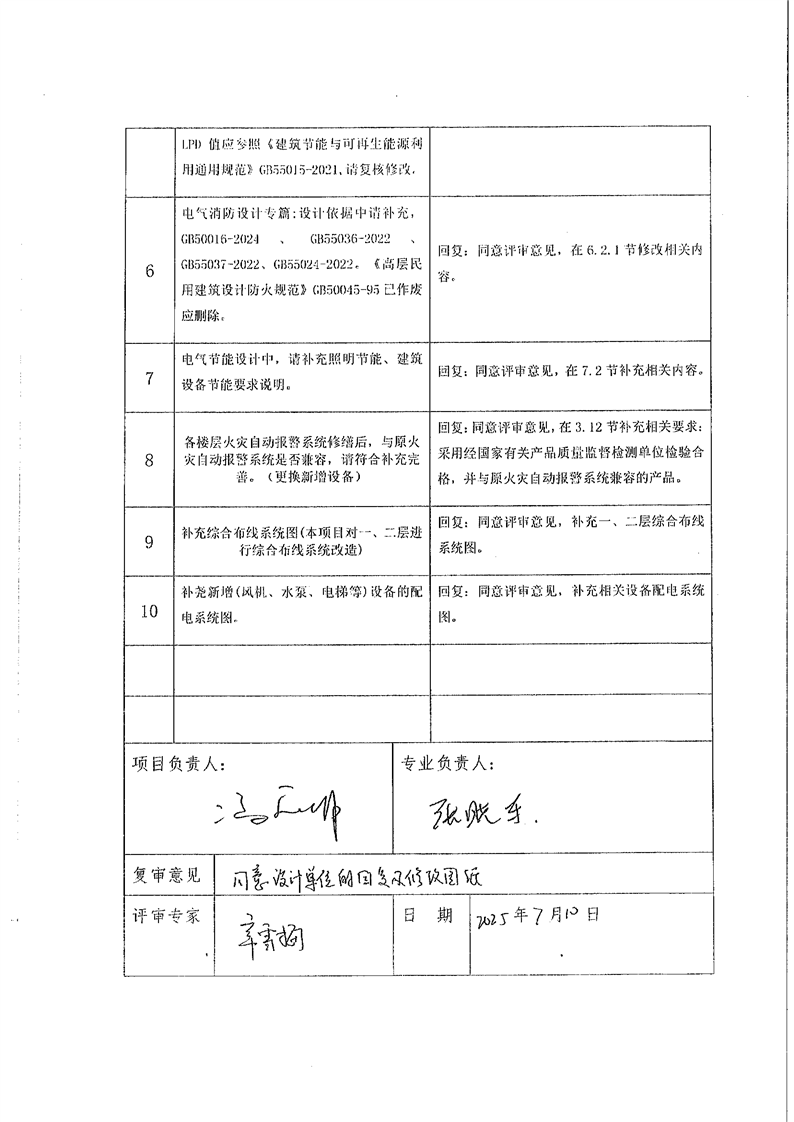 LPD 值应参照《建筑节能与可再生能源利
用通用规范》GB55015-2021、请复核修改.
6
电气消防设计专篇:设计依据中请补充,
GB50016-2024 、 GB55036-2022 、
GB55037-2022、GB55024-2022。《高层民
用建筑设计防火规范》GB50045-95 已作废
应删除。
回复：同意评审意见，在 6.2.1 节修改相关内
容。
7
电气节能设计中，请补充照明节能、建筑
设备节能要求说明。
回复：同意评审意见，在 7.2 节补充相关内容。
8
各楼层火灾自动报警系统修缮后，与原火
灾自动报警系统是否兼容，请符合补充完
善。（更换新增设备）
回复：同意评审意见，在 3.12 节补充相关要求：
采用经国家有关产品质量监督检测单位检验合
格，并与原火灾自动报警系统兼容的产品。
9
补充综合布线系统图(本项目对一、二层进
行综合布线系统改造)
回复：同意评审意见，补充一、二层综合布线
系统图。
10
补尧新增(风机、水泵、电梯等)设备的配
电系统图。
回复：同意评审意见，补充相关设备配电系统
图。
项目负责人：
专业负责人：
张晓东.
复审意见
同意设计单位的回复及修改图纸
评审专家
日 期
2025年7月10日